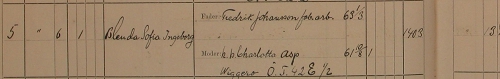 Fader Fredrik Johansson jobarb 63 1/3
5 " 6 1 Blenda Sofia Ingeborg 1403
Moder h.h. Charlotta Asp 61 8/8 1
Wiggerö Ö.S. 42 E 1/2